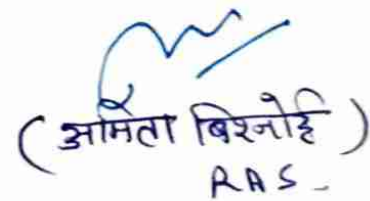 (अमिता बिश्नोई)
RAS-